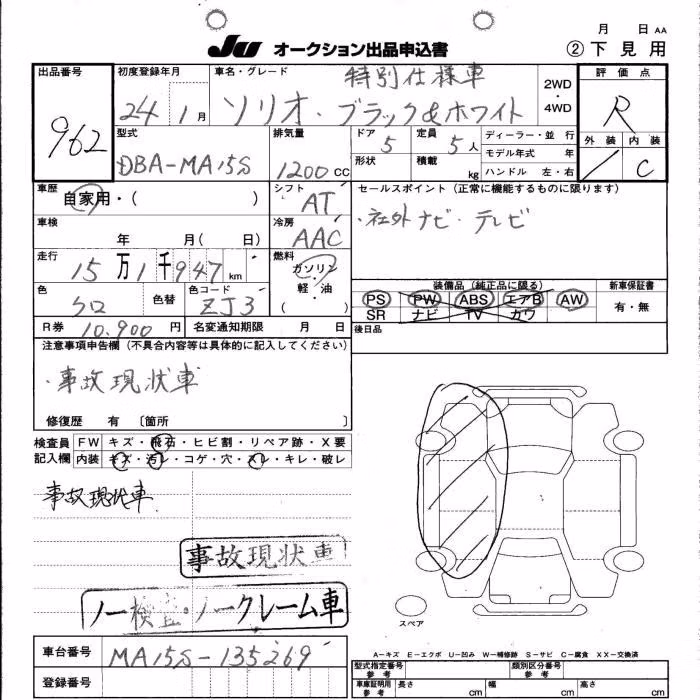 JU オークション出品申込書
月 日 AA
② 下見用
出品番号 962
初度登録年月 24 1月
車名・グレード 特別仕様車
ソリオ・ブラック&ホワイト
2WD ・ 4WD
評価点 R
外装 / 内装 C
型式 DBA-MA15S
排気量 1200 CC
ドア 5
定員 5人
形状
積載 kg
ディーラー・並 行
モデル年式 年
ハンドル 左・右
車歴 自家用・( )
シフト AT
セールスポイント(正常に機能するものに限ります)
・社外ナビ・テレビ
車検 年 月( 日)
冷房 AAC
走行 15万1千947km
燃料 ガソリン ・ 軽・油 ( )
色 クロ
色替
色コード ZJ3
装備品(純正品に限る)
PS PW ABS エアB AW
SR ナビ TV カワ
新車保証書 有・無
R券 10.900円
名変通知期限 月 日
後日品
注意事項申告欄(不具合内容等は具体的に記入してください)
・事故現状車
修復歴 有 〔箇所 〕
検査員記入欄
FW キズ・飛石・ヒビ割・リペア跡・X要
内装 キズ・汚レ・コゲ・穴・スレ・キレ・破レ
事故現状車
事故現状車
ノー検査・ノークレーム車
スペア
A-キズ E-エクボ U-凹み W-補修跡 S-サビ C-腐食 XX-交換済
車台番号 MA15S-135269
登録番号
型式指定番号 参考
類別区分番号 参考
車庫証明用 参考 長さ cm 幅 cm 高さ cm